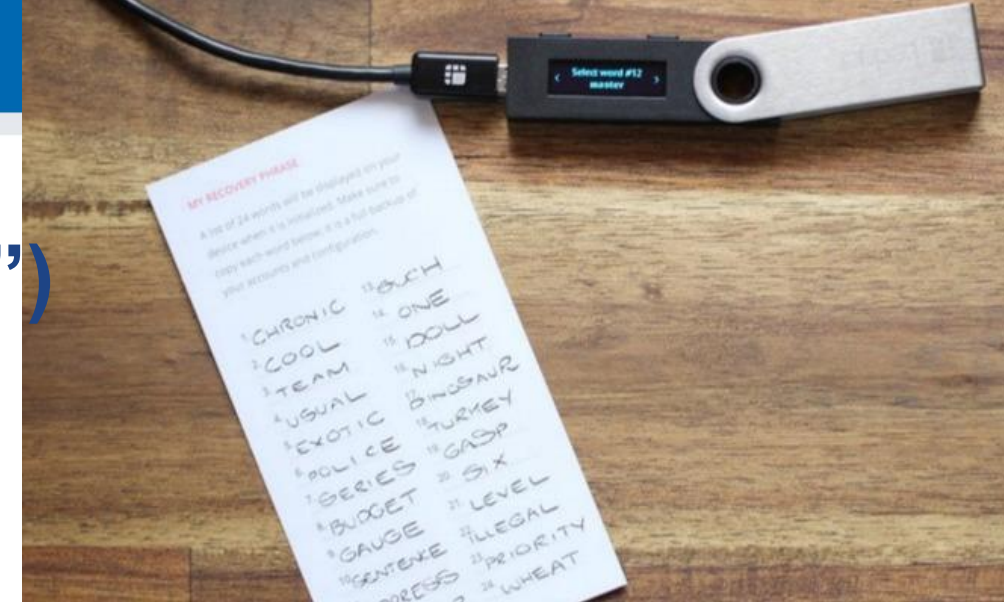 ”)
Select word #12
master
MY RECOVERY PHRASE
A list of 24 words will be displayed on your
device when it is initialized. Make sure to
copy each word below, it is a full backup of
your accounts and configuration.
1. CHRONIC
2. COOL
3. TEAM
4. USUAL
5. EXOTIC
6. POLICE
7. SERIES
8. BUDGET
9. GAUGE
10. SENTENCE
13. SUCH
14. ONE
15. DOLL
16. NIGHT
17. DINOSAUR
18. TURKEY
19. GASP
20. SIX
21. LEVEL
22. ILLEGAL
23. PRIORITY
24. WHEAT